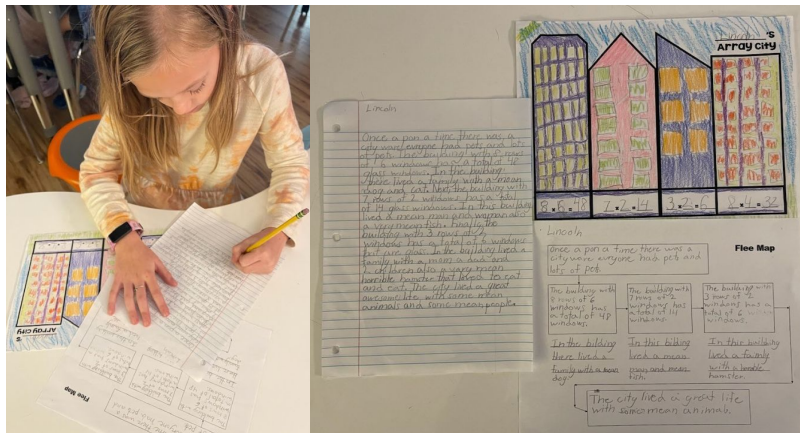 Lincoln
Once a pon a time there was a
city were everyone had pets and lots
of pets. The building with 8 rows
of 6 windows has a total of 48
glass windows. In the building
there lived a family with a mean
dog and cat. Next, the building with
7 rows of 2 windows has a total
of 14 glass windows. In this building
lived a mean man and woman also
a very mean fish. Finally, the
building with 3 rows of 2
windows has a total of 6 windows
that are gold. In the building lived a
family with a mom a dad and
2 children also a very mean
horrible hamster that loved to eat
and eat. The city lived a great
awesome life with some mean
animals and some mean people.
Lincoln's
Array City
8·6=48
7·2=14
3·2=6
8·4=32
Lincoln
Flee Map
Once a pon a time there was a
city were everyone had pets and
lots of pet.
The building with
8 rows of 6
windows has
a total of 48
windows.
The building with
7 rows of 2
windows has
a total of 14
windows.
The building with
3 rows of 2
windows has a
total of 6
windows.
In the bilding
there lived a
family with a mean
dog
In this bilding
lived a mean
man and mean
fish.
In this building
lived a family
with a
hamster.
The city lived a great life
with some mean animals.
Array City
Flee Map